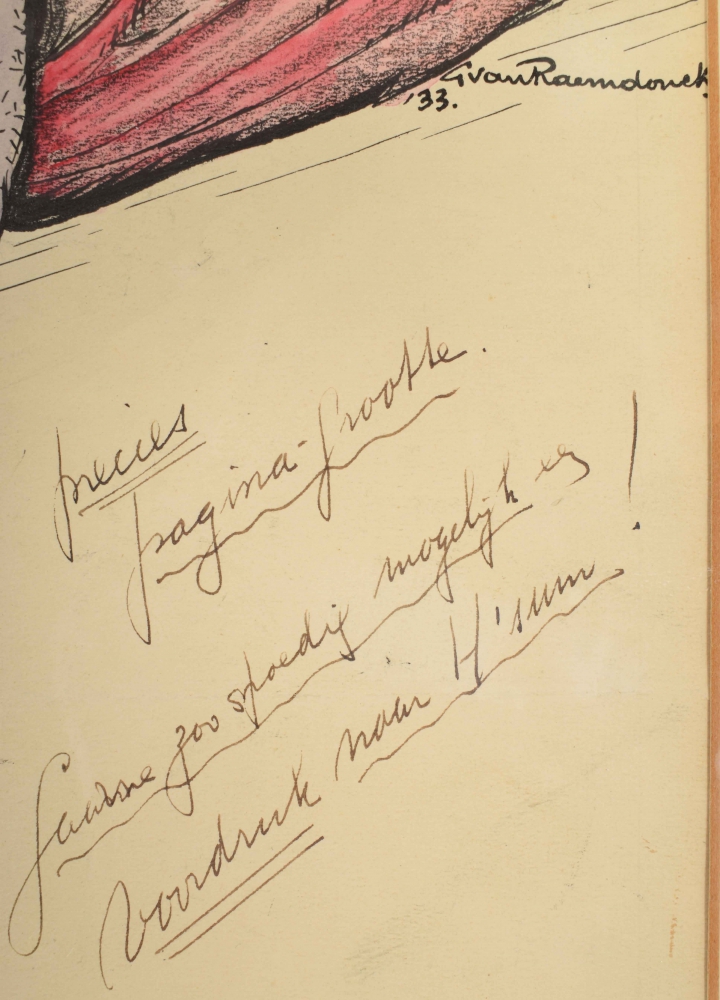 GvanRaemdonck
'33.
precies
pagina-Grootte.
Gaarne zoo spoedig mogelijk een
voordruk naar H'sum!